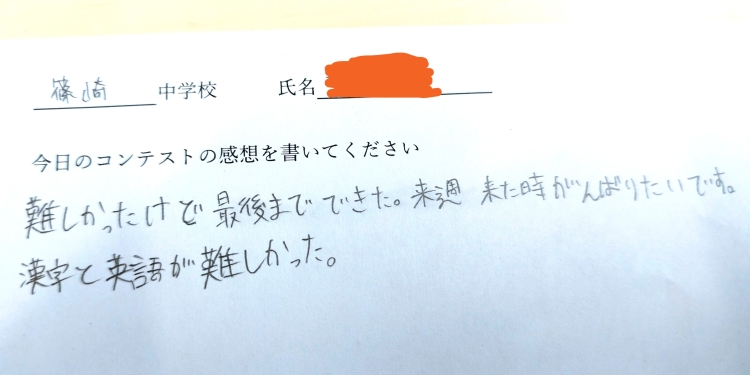 篠崎 中学校 氏名
今日のコンテストの感想を書いてください
難しかったけど最後までできた。来週 来た時がんばりたいです。
漢字と英語が難しかった。